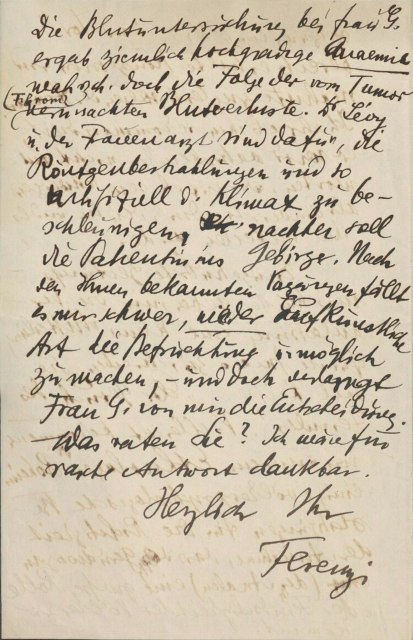 Die Blutuntersuchung bei Frau G.
ergab ziemlich hochgradige Anaemie
wahrsch. doch die Folge der vom Tumor
(Fibrom?)
verursachten Blutverluste. Dr Lévy
u. der Frauenarzt sind dafür, die
Röntgenbestrahlungen und so
d. Klimax zu be-
schleunigen, nachher soll
die Patientin ins Gebirge. Nach
den Ihnen bekannten fällt
es mir schwer, wieder künstliche
Art die Befruchtung unmöglich
zu machen, – und doch verlangt
Frau G. von mir die Entscheidung.
Was raten Sie? Ich wäre für
rasche Antwort dankbar.
Herzlich Ihr
Ferenczi